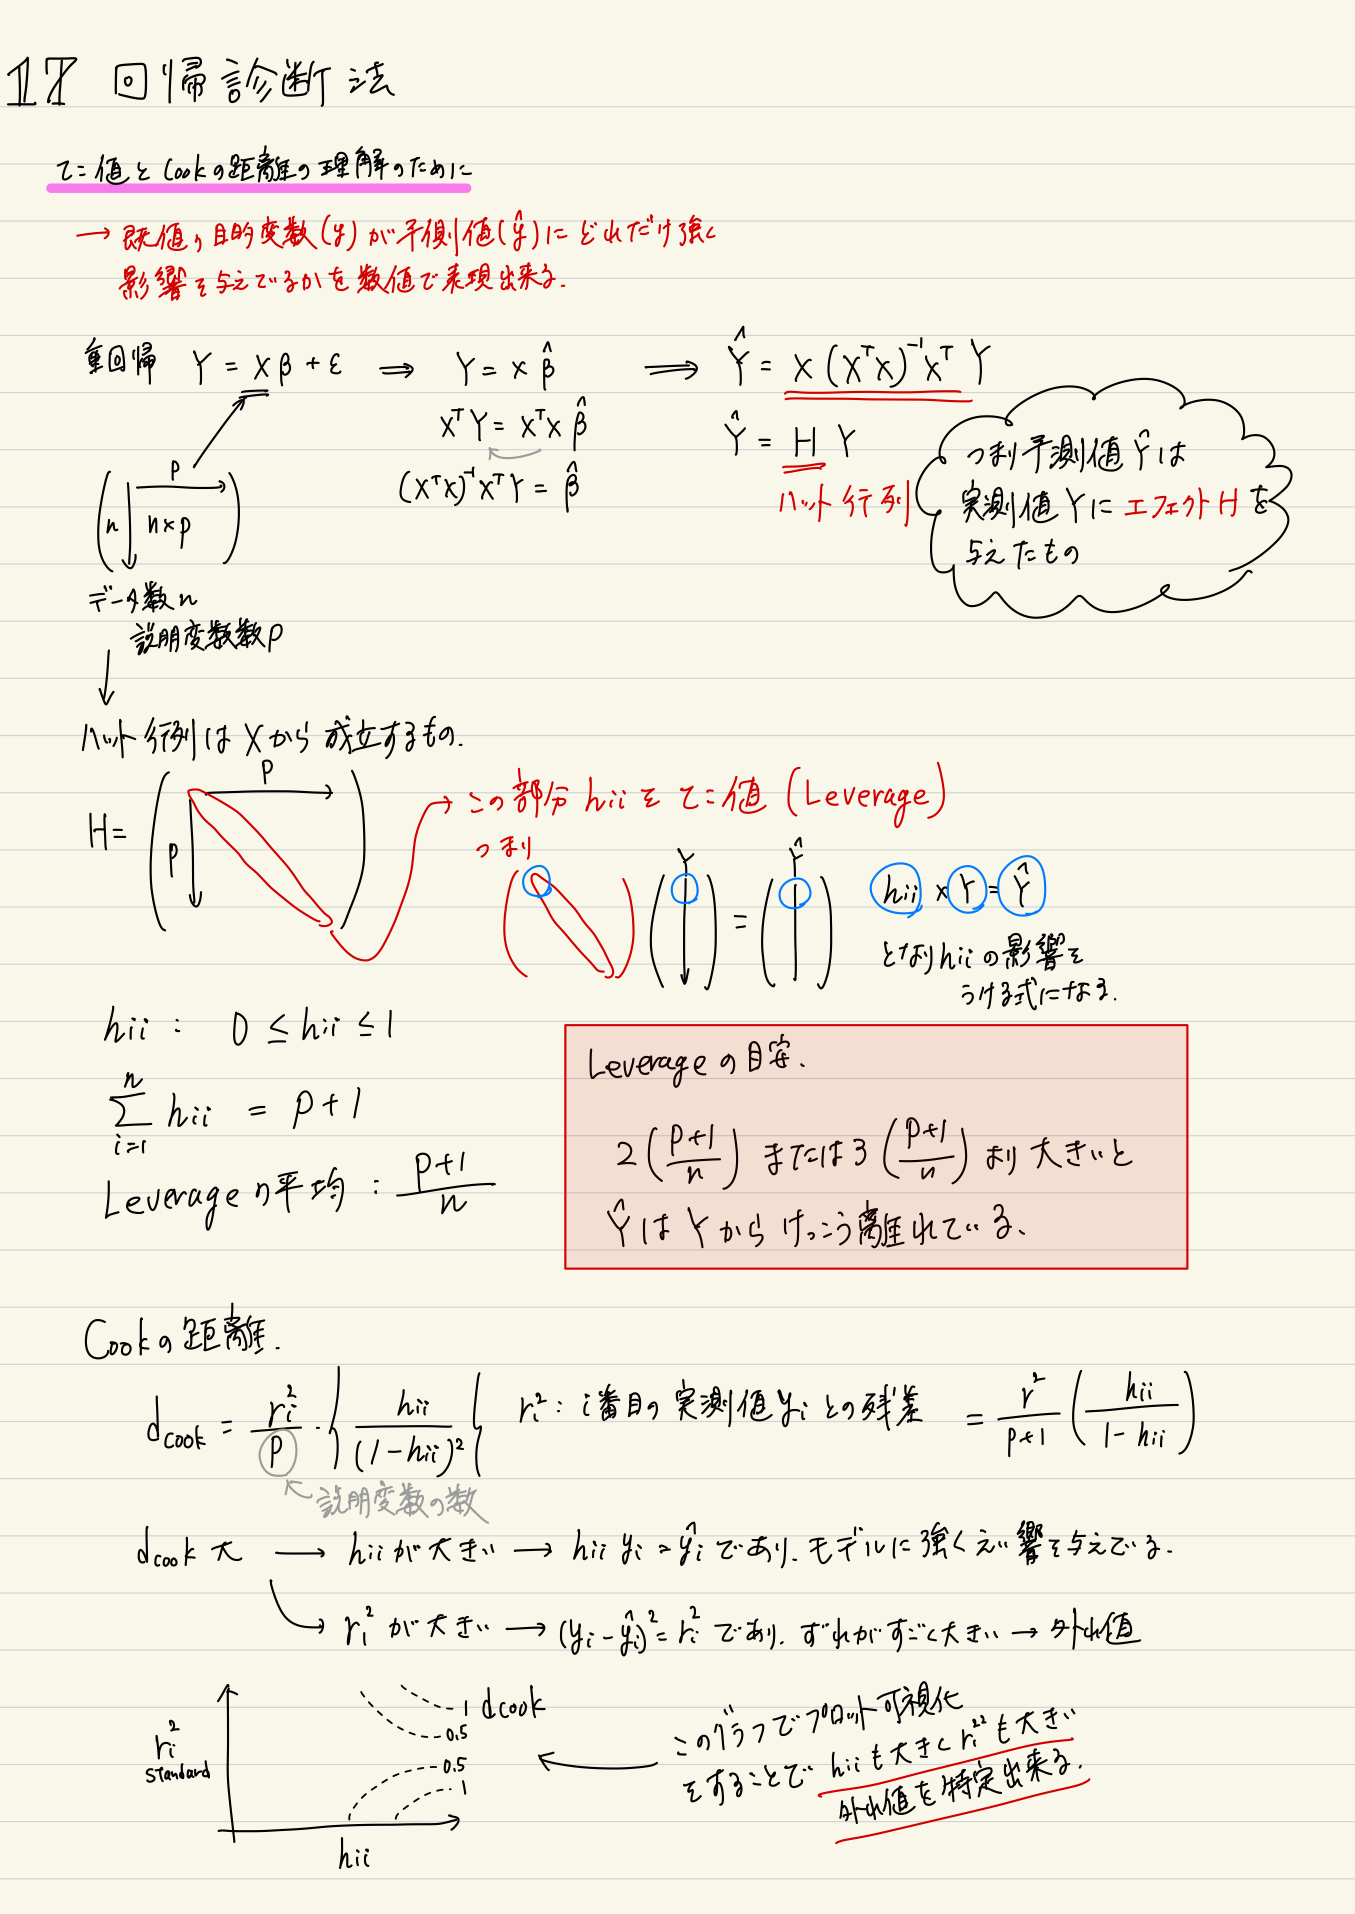 17 回帰診断法
てこ値とCookの距離の理解のために
→ 既値の目的変数(y)が予測値(ŷ)にどれだけ強く
影響を与えているかを数値で表現出来る.
重回帰 Y = Xβ + ε ⟹ Y = Xβ̂ ⟹ Ŷ = X(XᵀX)⁻¹Xᵀ Y
XᵀY = XᵀX β̂
Ŷ = H Y
(XᵀX)⁻¹XᵀY = β̂
ハット行列
つまり予測値Ŷは
実測値Yにエフェクト H を
与えたもの
p
n n×p
データ数n
説明変数数p
ハット行列はXから成立するもの.
H = p p
→ この部分 hii を てこ値 (Leverage)
つまり
Y = Ŷ
hii × Y = Ŷ
となりhiiの影響を
うける式になる.
hii : 0 ≤ hii ≤ 1
∑ⁿᵢ₌₁ hii = p+1
Leverageの平均 : (p+1)/n
Leverageの目安.
2((p+1)/n) または 3((p+1)/n) より大きいと
ŶはYからけっこう離れている、
Cookの距離.
dcook = ri²/p · { hii/(1-hii)² { ri² : i番目の実測値yiとの残差 = r²/(p+1) (hii/(1-hii))
説明変数の数
dcook 大 → hiiが大きい → hii yi = ŷi であり、モデルに強くえい響を与えている.
→ ri² が大きい → (yi - ŷi)² = ri² であり、ずれがすごく大きい → 外れ値
ri²
standard
1 dcook
0.5
0.5
1
hii
このグラフでプロット可視化
をすることで hiiも大きく ri²²も大きい
外れ値を特定出来る.